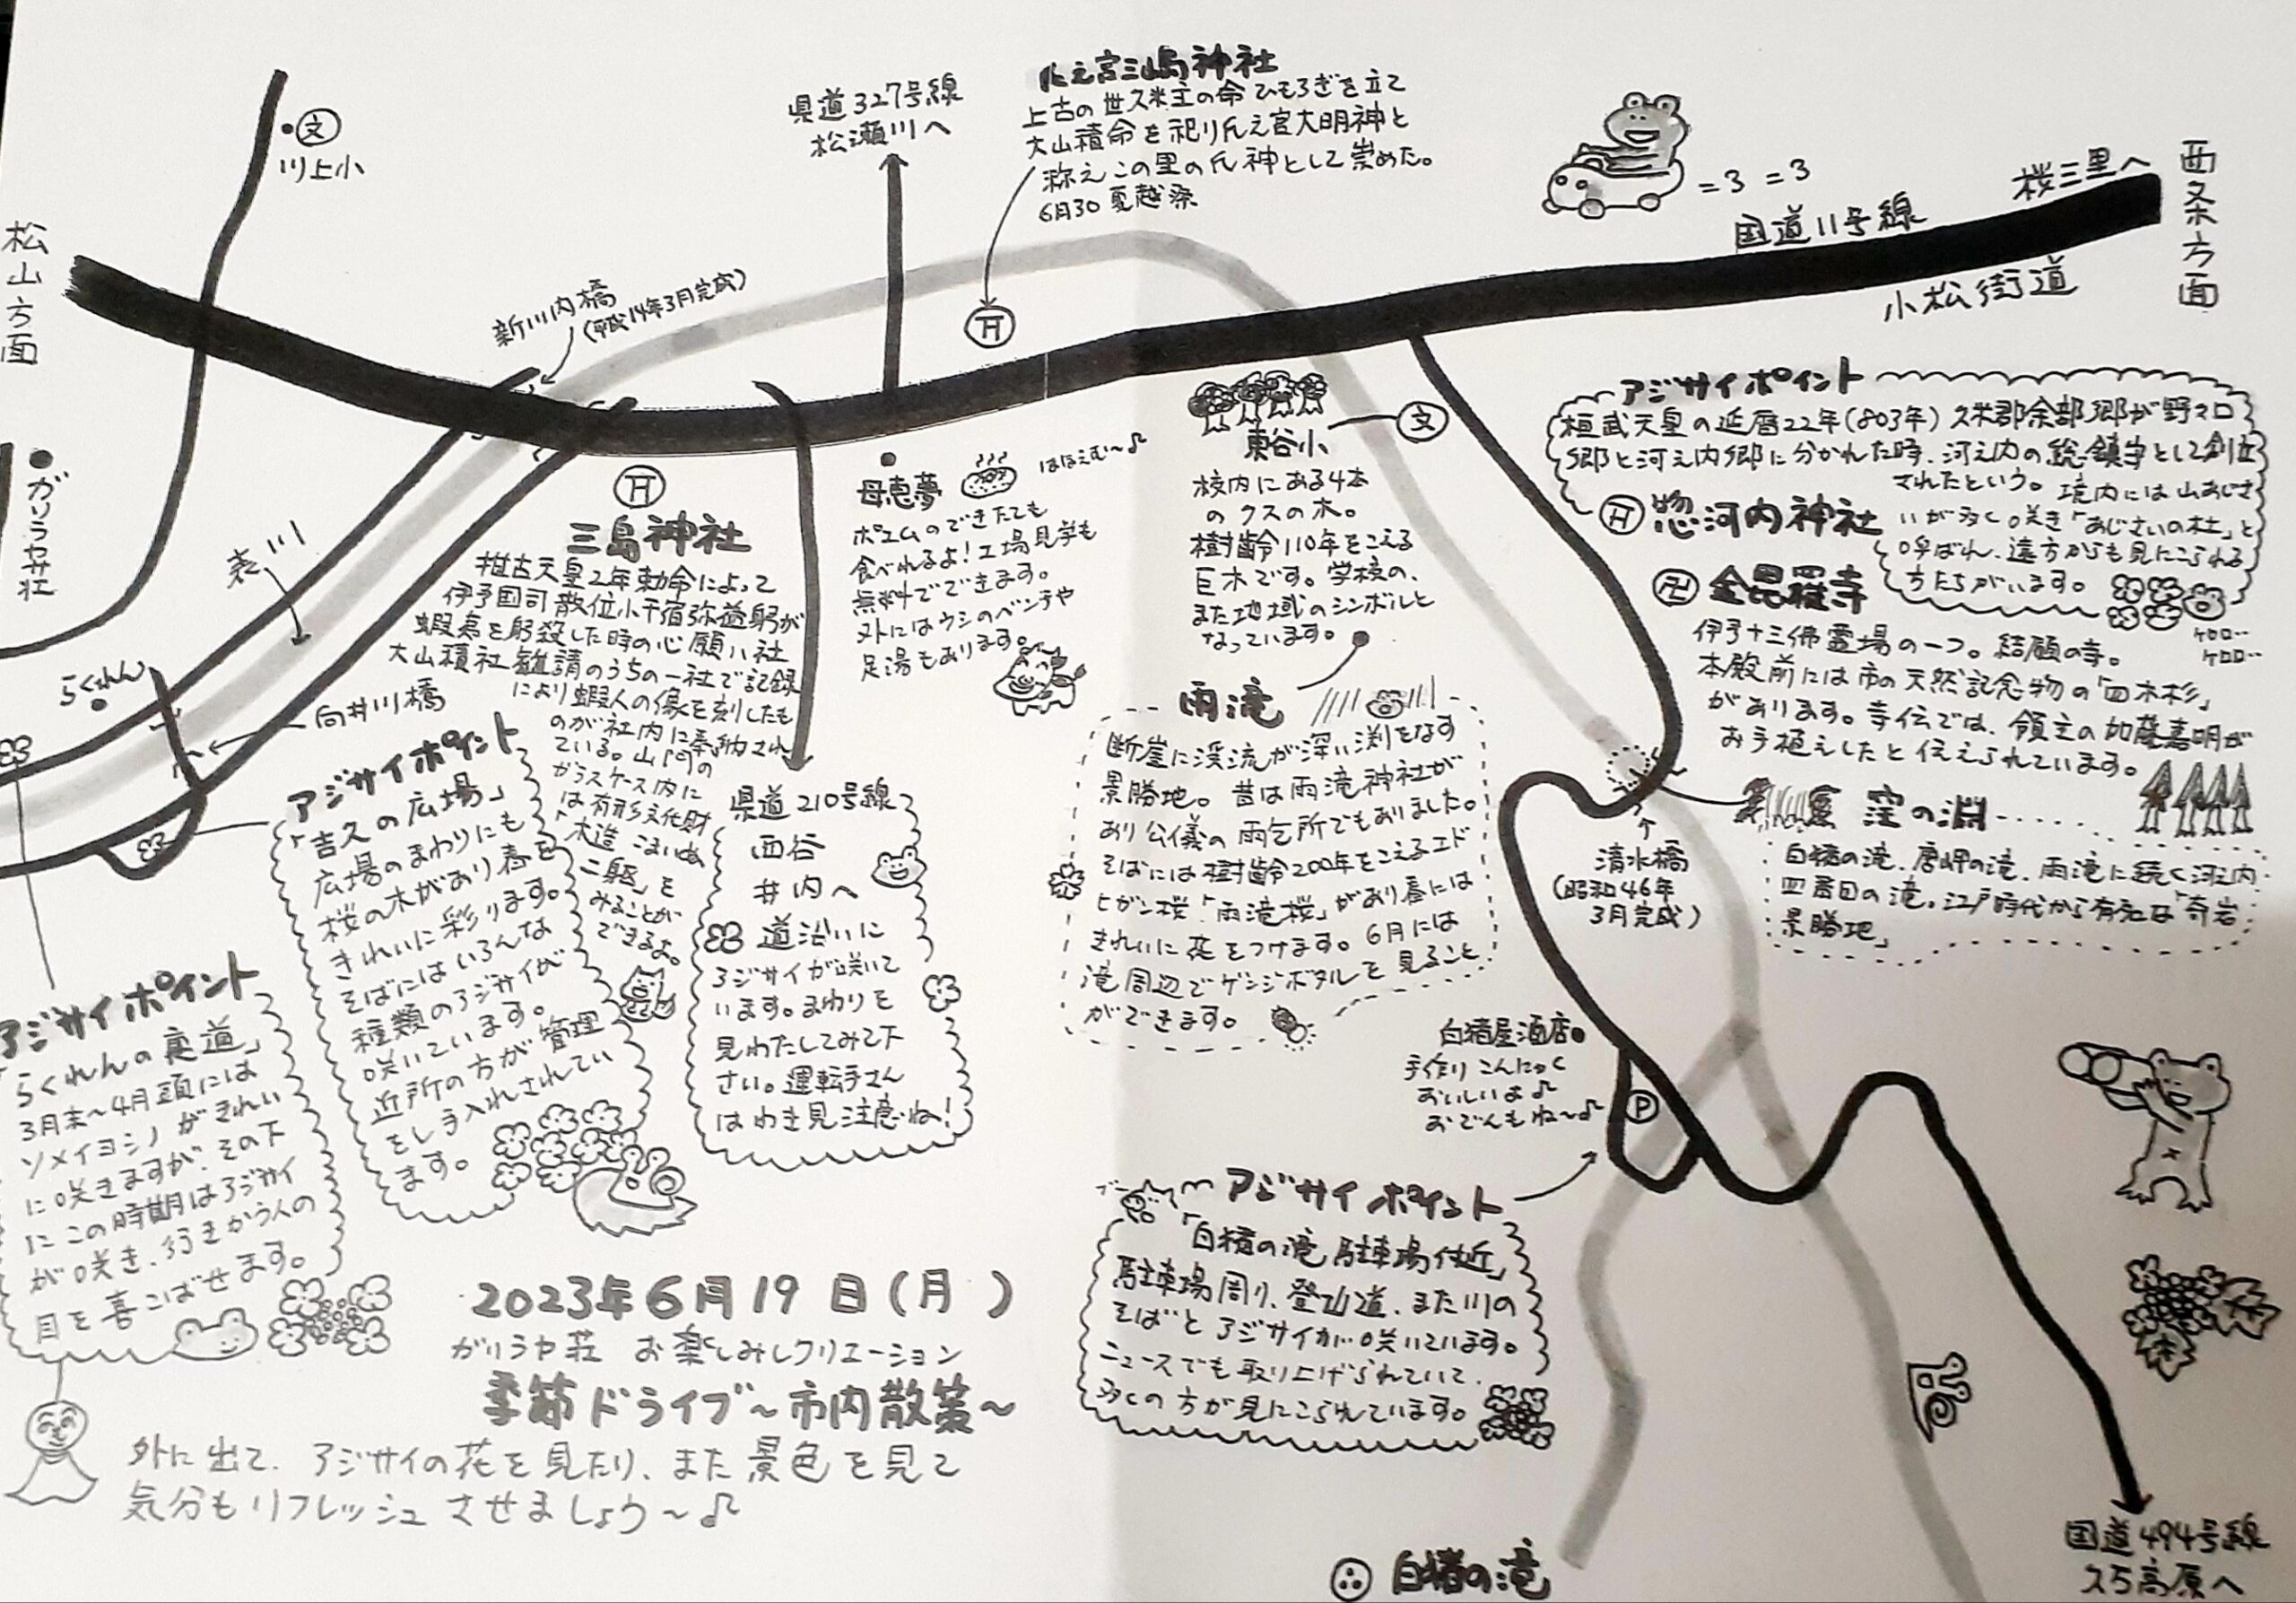 川上小
松山方面
がリラヤ荘
県道327号線
松瀬川へ
氏之宮三嶋神社
上古の世久米主の命ひもろぎを立て
大山積命を祀り氏之宮大明神と
称えこの里の氏神として崇めた。
6月30 夏越祭
=3 =3
国道11号線
桜三里へ
西条方面
小松街道
新川内橋
(平成14年3月完成)
表川
らくれん
向井川橋
三島神社
推古天皇2年勅命によって
伊予国司散位小千宿弥益躬が
大山積社勧請のうちの一社で記録
により蝦人の像を刻したも
のが社内に奉納され
ている。山門の
ガラスケース内に
は有形文化財
「木造 こまいぬ
二躯」を
みることが
できるよ。
母恵夢
ほほえむ〜♪
ポエムのできたても
食べれるよ!工場見学も
無料でできます。
外にはウシのベンチや
足湯もあります。
県道210号線
西谷
井内へ
道沿いに
アジサイが咲いて
います。まわりを
見わたしてみて下
さい。運転手さん
はわき見注意ね!
東谷小
校内にある4本
のクスの木。
樹齢110年をこえる
巨木です。学校の、
また地域のシンボルと
なっています。
雨滝
断崖に渓流が深い渕をなす
景勝地。昔は雨滝神社が
あり公儀の雨乞所でもありました。
そばには樹齢200年をこえるエド
ヒガン桜「雨滝桜」があり春には
きれいに花をつけます。6月には
滝周辺でゲンジボタルを見ること
ができます。
アジサイポイント
桓武天皇の延暦22年(803年)久米郡余部郷が野々口
郷と河之内郷に分かれた時、河之内の総鎮守として創社
されたという。境内には山あじさ
いが多く咲き「あじさいの杜」と
呼ばれ、遠方からも見にこられる
方たちがいます。
惣河内神社
ケロロ‥
ケロロ‥
金毘羅寺
伊予十三佛霊場の一つ。結願の寺。
本殿前には市の天然記念物の「四本杉」
があります。寺伝では、領主の加藤嘉明が
お手植えしたと伝えられています。
窪の淵
白猪の滝、唐岬の滝、雨滝に続く河之内
四番目の滝。江戸時代から有名な「奇岩
景勝地」
清水橋
(昭和46年
3月完成)
白猪屋酒店
手作りこんにゃく
おいしいよ♪
おでんもね〜♪
P
アジサイポイント
「白猪の滝駐車場付近」
駐車場周り、登山道、また川の
そばとアジサイが咲いています。
ニュースでも取り上げられていて、
多くの方が見にこられています。
白猪の滝
国道494号線
久万高原へ
アジサイポイント
「吉久の広場」
広場のまわりにも
桜の木があり春を
きれいに彩ります。
そばにはいろんな
種類のアジサイが
咲いています。
近所の方が管理
をし手入れされてい
ます。
アジサイポイント
「らくれんの裏道」
3月末〜4月頭には
ソメイヨシノがきれい
に咲きますが、その下
にこの時期はアジサイ
が咲き、行きかう人の
目を喜こばせます。
2023年6月19日(月)
がリラヤ荘 お楽しみレクリエーション
季節ドライブ〜市内散策〜
外に出て、アジサイの花を見たり、また景色を見て
気分もリフレッシュさせましょう〜♪